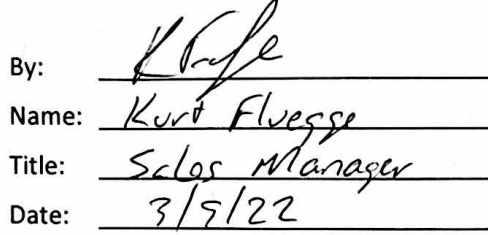 By:
Name: Kurt Fluegge
Title: Sales Manager
Date: 3/9/22